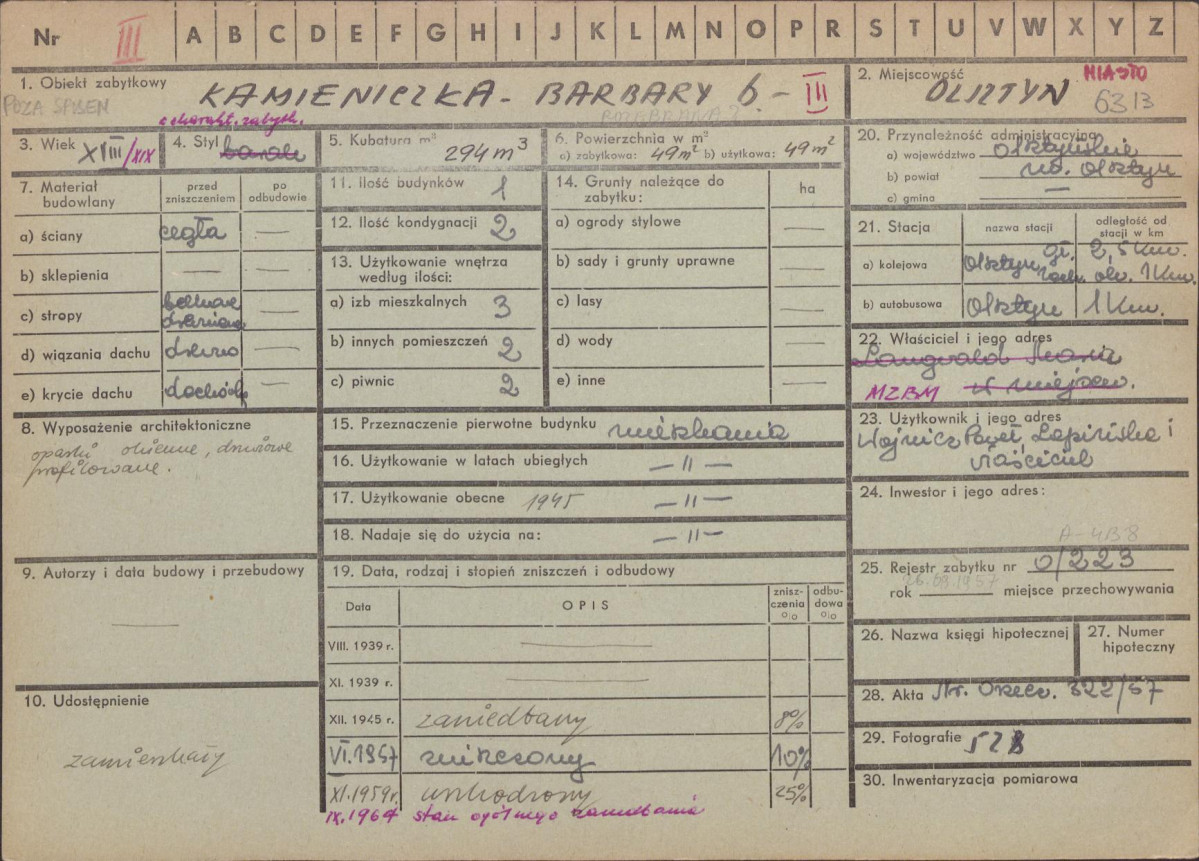 Nr III A B C D E F G H I J K L M N O P R S T U V W X Y Z
1. Obiekt zabytkowy
POZA SPISEM
KAMIENICZKA - BARBARY 6. - III
2. Miejscowość
MIASTO
OLSZTYN 6313
o charakt. zabytk.
3. Wiek XVIII/XIX
4. Styl barok
5. Kubatura m³
294 m³
6. Powierzchnia w m²
a) zabytkowa: 49 m² b) użytkowa: 49 m²
7. Materiał budowlany
przed zniszczeniem
po odbudowie
a) ściany cegła —
b) sklepienia — —
c) stropy belkowe drewniane —
d) wiązania dachu drewno —
e) krycie dachu dachówka —
8. Wyposażenie architektoniczne
opaski okienne, drzwiowe
profilowane.
9. Autorzy i data budowy i przebudowy
—
10. Udostępnienie
zamieszkały
11. Ilość budynków 1
12. Ilość kondygnacji 2
13. Użytkowanie wnętrza
według ilości:
a) izb mieszkalnych 3
b) innych pomieszczeń 2
c) piwnic 2
14. Grunty należące do
zabytku:
ha
a) ogrody stylowe —
b) sady i grunty uprawne —
c) lasy —
d) wody —
e) inne —
15. Przeznaczenie pierwotne budynku mieszkania
16. Użytkowanie w latach ubiegłych — 11 —
17. Użytkowanie obecne 1945 — 11 —
18. Nadaje się do użycia na: — 11 —
19. Data, rodzaj i stopień zniszczeń i odbudowy
Data
OPIS
znisz-
czenia
o/o
odbu-
dowa
o/o
VIII. 1939 r. —
XI. 1939 r. —
XII. 1945 r. zaniedbany 8%
VI.1957 zniszczony 10%
XI.1959r. uszkodzony 25%
IX.1964 stan ogólnego zaniedbania
20. Przynależność administracyjna
a) województwo olsztyńskie
b) powiat m. Olsztyn
c) gmina —
21. Stacja
nazwa stacji
odległość od
stacji w km
a) kolejowa Olsztyn gł. 2,5 Km.
zach. ok. 1 Km.
b) autobusowa Olsztyn 1 Km.
22. Właściciel i jego adres
Langwald Maria
MZBM w miejscu.
23. Użytkownik i jego adres
Wojnicz Paweł Łapińska i
właściciel
24. Inwestor i jego adres:
A-4138
25. Rejestr zabytku nr 0/223
rok 26.08.1957 miejsce przechowywania
26. Nazwa księgi hipotecznej
27. Numer
hipoteczny
28. Akta Str. Orzecz. 322/57
29. Fotografie 528
30. Inwentaryzacja pomiarowa